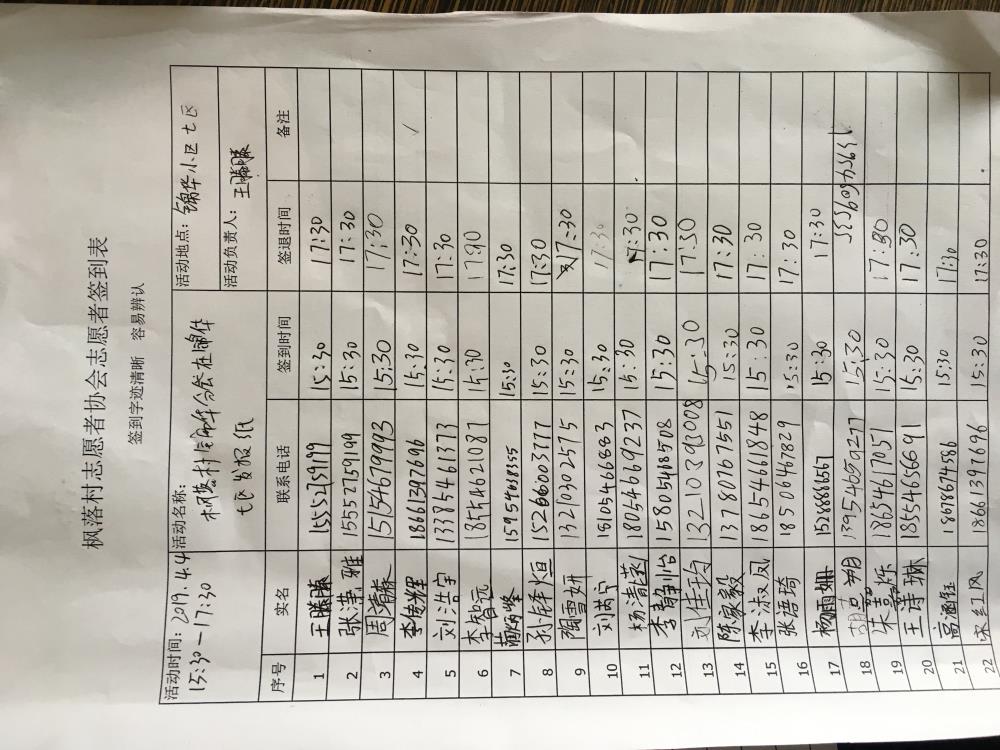 枫落村志愿者协会志愿者签到表
签到字迹清晰 容易辨认
活动时间：2019.4.4 活动名称： 活动地点：锦华小区七区
15:30-17:30 七区发报纸 活动负责人：
序号 实名 联系电话 签到时间 签退时间 备注
1 15552759199 15:30 17:30
2 张潇雅 15552759199 15:30 17:30
3 15154679993 15:30 17:30
4 李俊辉 18661397696 15:30 17:30
5 刘浩宇 13385461373 15:30 17:30
6 李智元 18554621087 15:30 17:30
7 15954608355 15:30 17:30
8 孙铎烜 15266003177 15:30 17:30
9 陶雪妍 13210302575 15:30 17:30
10 刘芮宁 18105466883 15:30 17:30
11 杨清菡 18054669237 15:30 17:30
12 李静怡 15805468508 15:30 17:30
13 刘佳均 15:30 17:30
14 陈家毅 13780767551 15:30 17:30
15 李淑凤 18654661848 15:30 17:30
16 张语琦 18506467829 15:30 17:30
17 杨雨姗 15288886567 15:30 17:30
18 15:30
19 朱嘉烁 18654617051 15:30 17:30
20 王诗琳 18554656691 15:30 17:30
21 高涵钰 18678674586 15:30 17:30
22 宋红风 18661397696 15:30 17:30